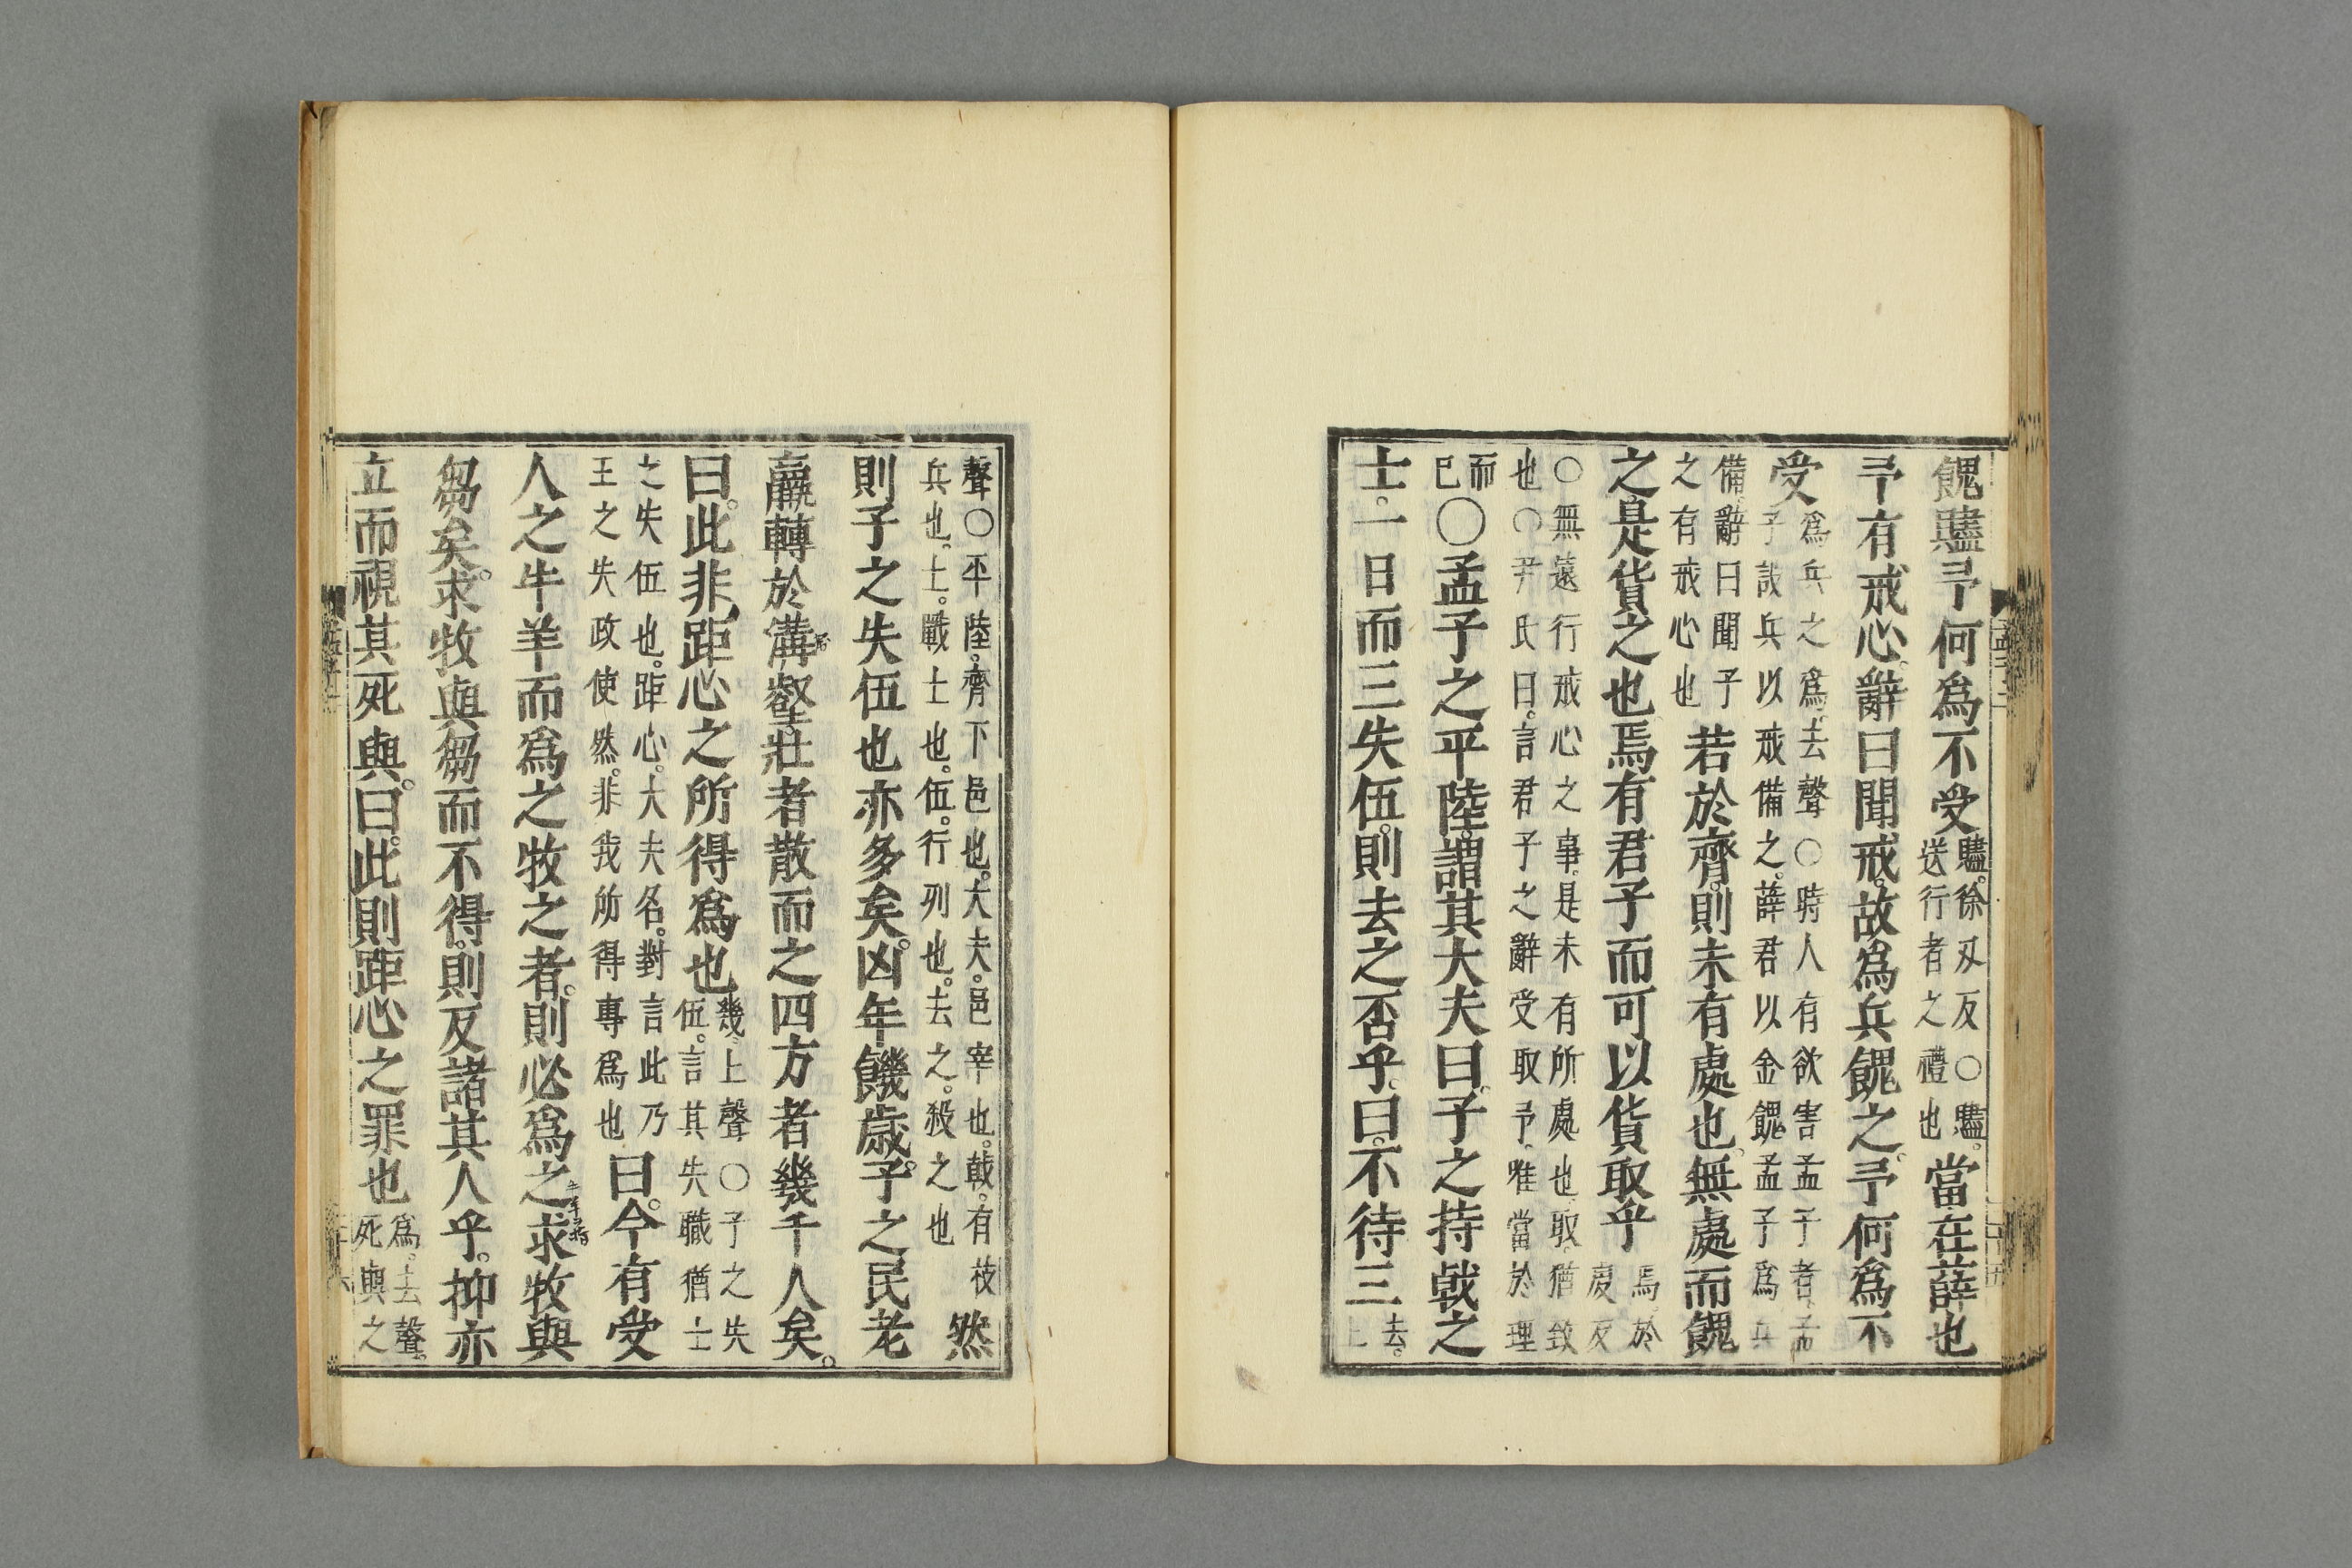 餽贐予何爲不受贐。徐刄反○贐。送行者之禮也當在薛也
予有戒心。辭曰聞戒。故爲兵餽之。予何爲不
受爲兵之爲。去聲○時人有欲害孟子者。孟子設兵以戒備之。薛君以金餽孟子爲兵
備。辭曰聞子之有戒心也若於齊。則未有處也。無處而餽
之是貨之也焉有君子而可以貨取乎焉。於虔反
○無遠行戒心之事。是未有所處也。取。猶致
也○尹氏曰。言君子之辭受取予。唯當於理
而已○孟子之平陸。謂其大夫曰。子之持戟之
士。一日而三失伍。則去之否乎。曰。不待三去。上
聲○平陸。齊下邑也。大夫。邑宰也。戟。有枝兵也。士。戰士也。伍。行列也。去之。殺之也然
則子之失伍也亦多矣。凶年饑歲。子之民老
羸轉於溝壑。壯者散而之四方者幾千人矣。
曰。此非距心之所得爲也幾。上聲○子之失伍。言其失職猶士
之失伍也。距心。大夫名。對言此乃王之失政使然。非我所得專爲也曰。今有受
人之牛羊而爲之牧之者。則必爲之求牧與
芻矣。求牧與芻而不得。則反諸其人乎。抑亦
立而視其死與。曰。此則距心之罪也爲。去聲。死與之